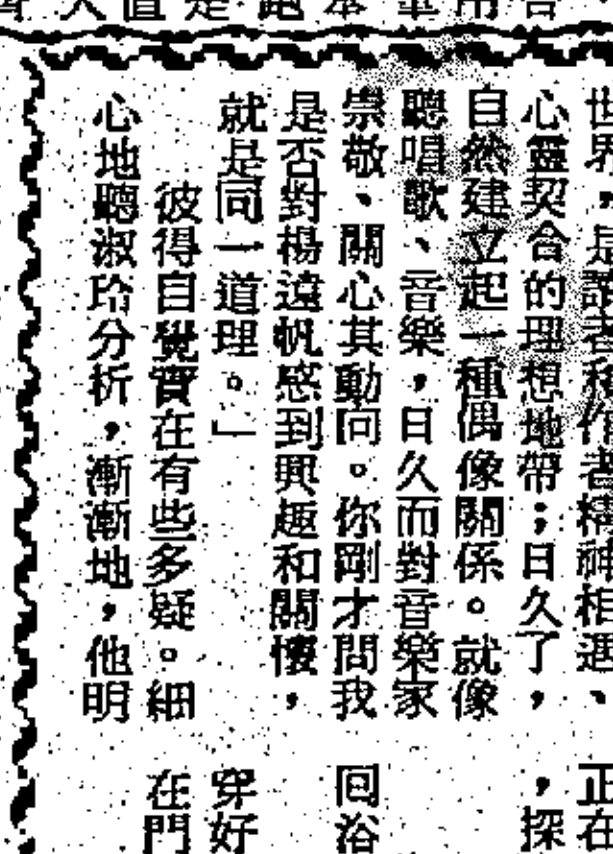 世界，是讀者和作者精神相遇、
心靈契合的理想地帶；日久了，
自然建立起一種偶像關係。就像
聽唱歌、音樂，日久而對音樂家
崇敬、關心其動向。你剛才問我
是否對楊遠帆感到興趣和關懷，
就是同一道理。」
彼得自覺實在有些多疑。細
心地聽淑玲分析，漸漸地，他明
正在
，探
回浴
穿好
在門